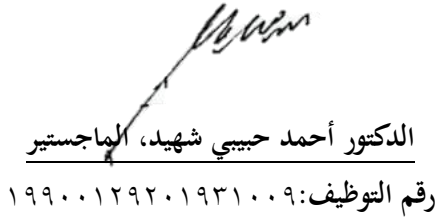 الدكتور أحمد حبيبي شهيد، الماجستير
رقم التوظيف:١٩٩٠٠١٢٩٢٠١٩٣١٠٠٩